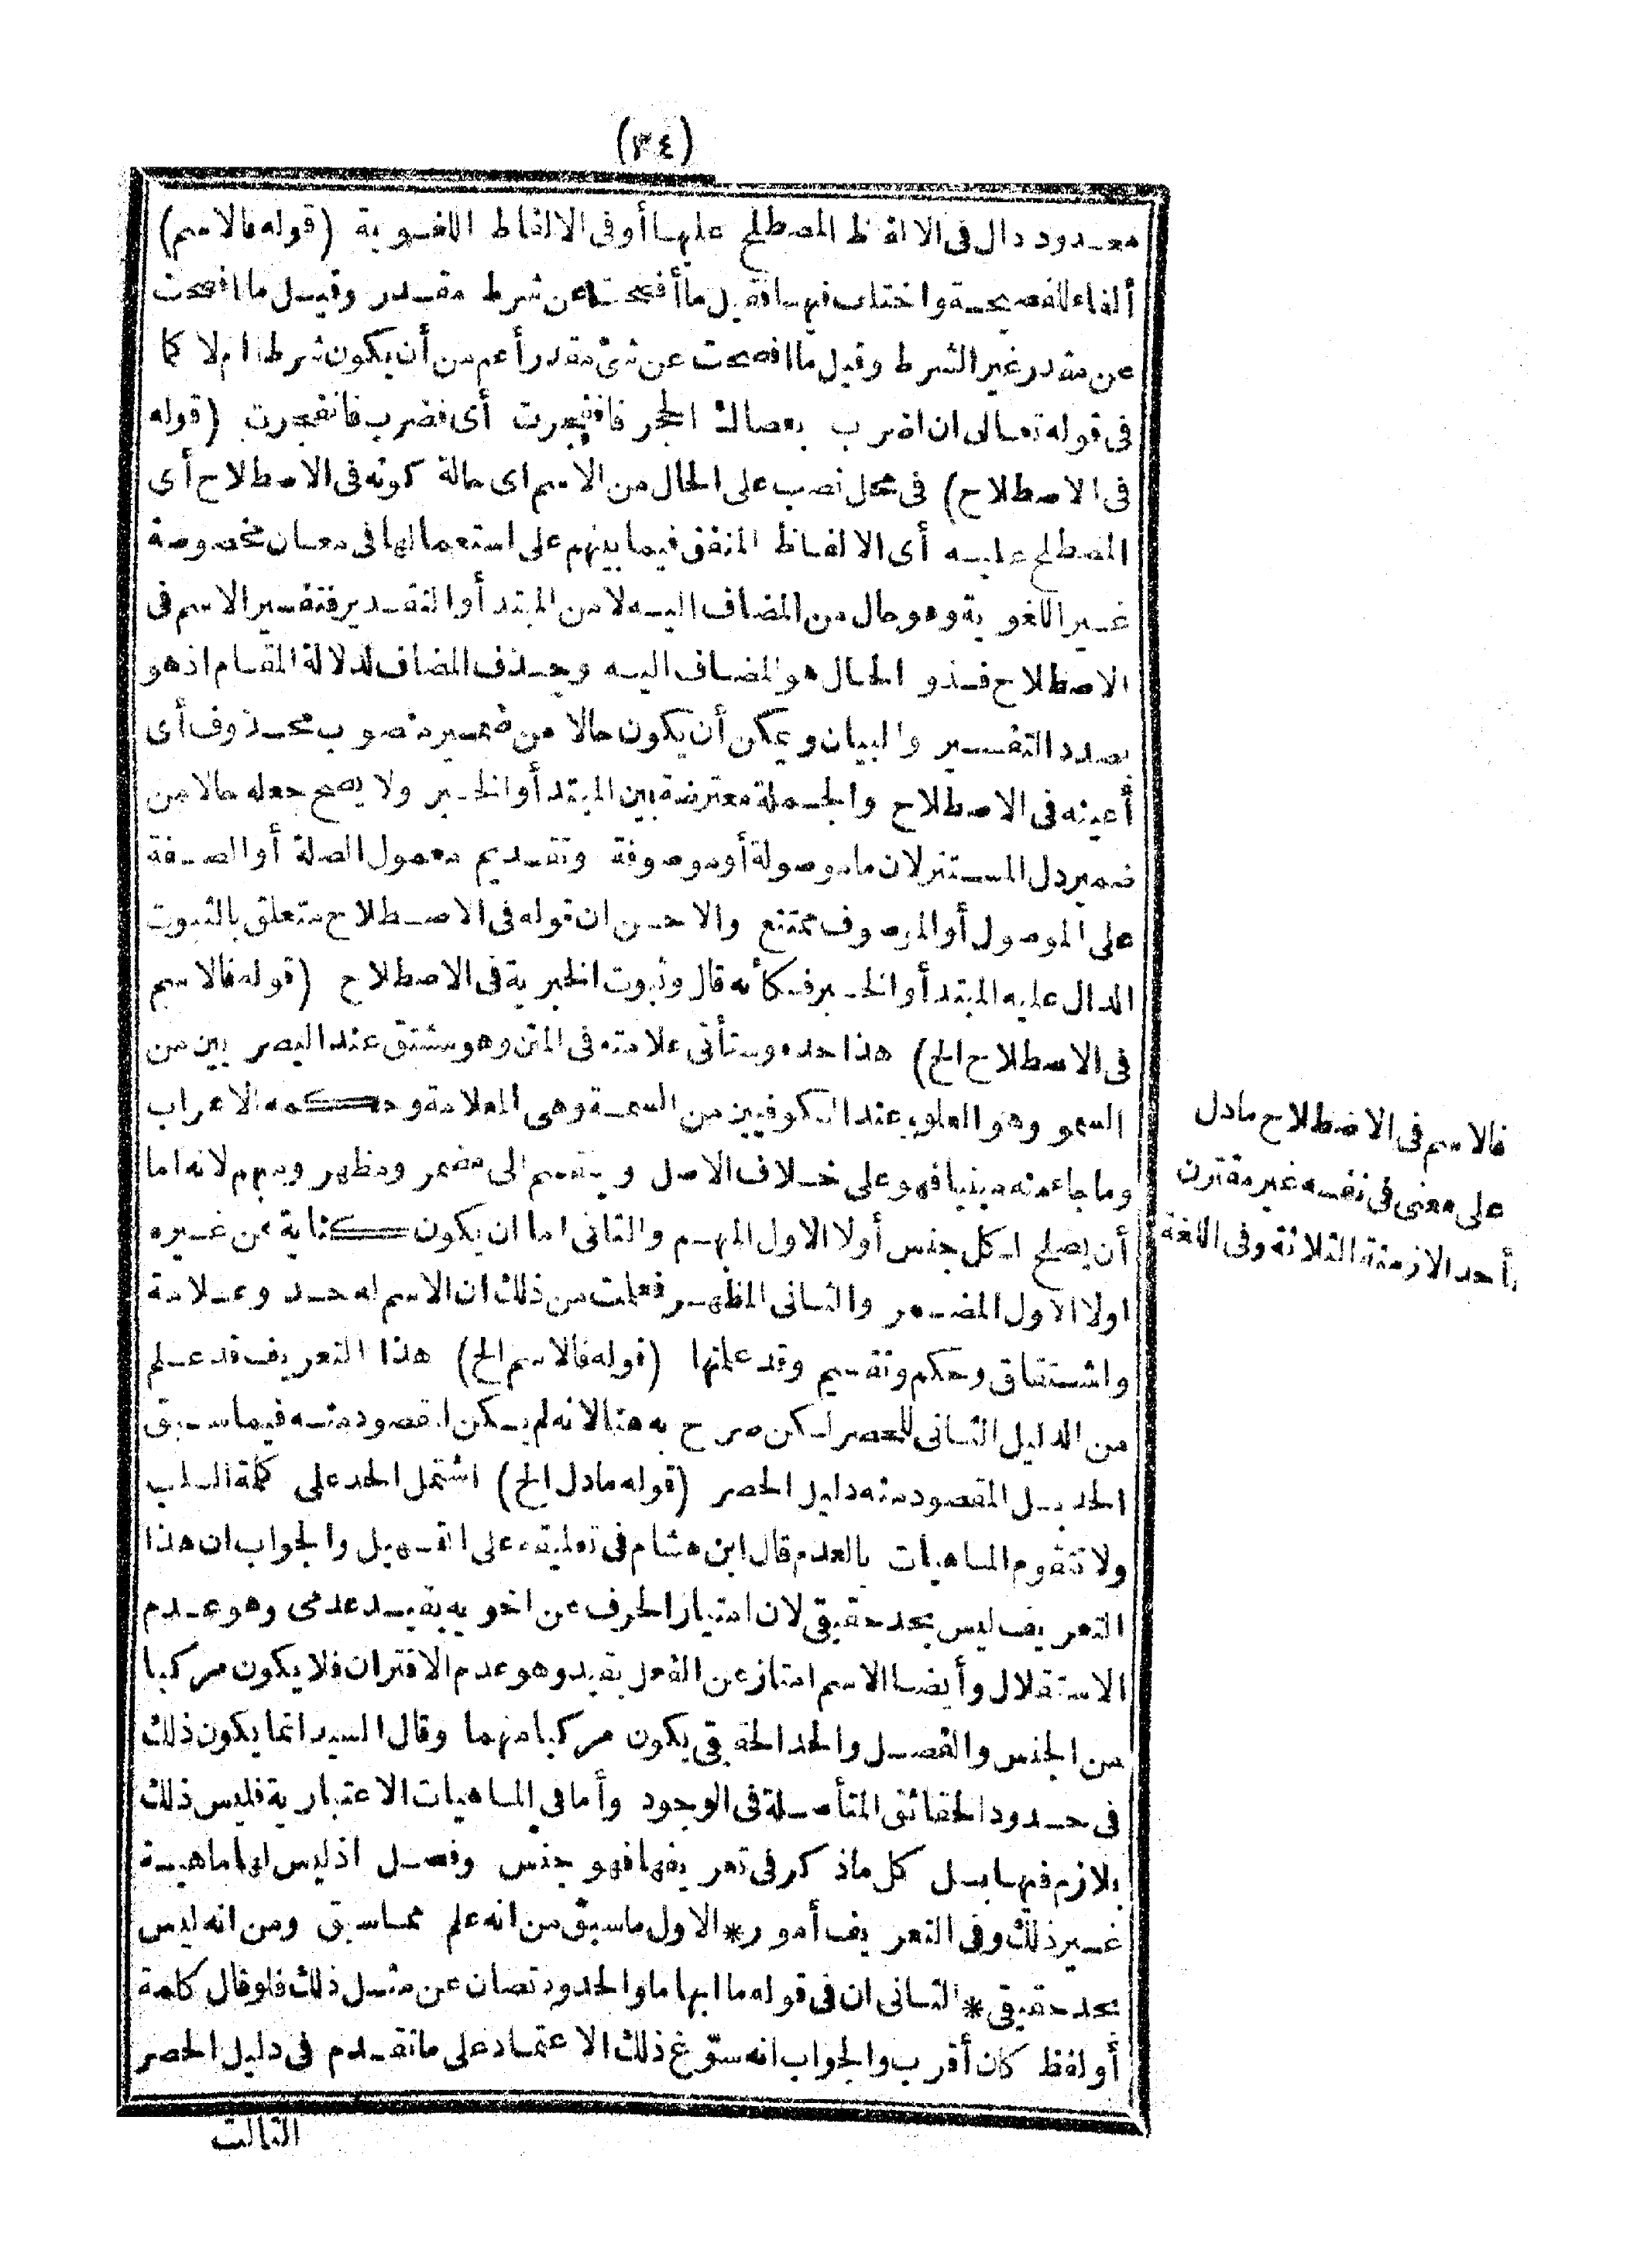 (٣٤)
معدود دال فى الالفاظ المصطلح عليها أو فى الالفاظ اللغوية (قوله فالاسم)
ألفاء للفصيحة واختلف فيها فقيل ما أفصحت عن شرط مقدر وقيل ما افصحت
عن مقدر غير الشرط وقيل ما افصحت عن شئ مقدر أعم من أن يكون شرطا ام لا كما
فى قوله تعالى ان اضرب بعصاك الحجر فانفجرت أى فضرب فانفجرت (قوله
فى الاصطلاح) فى محل نصب على الحال من الاسم اى حالة كونه فى الاصطلاح أى
المصطلح عليه أى الالفاظ المتفق فيما بينهم على استعمالها فى معان مخصوصة
غير اللغوية وهو حال من المضاف اليه لا من المبتدأ والتقدير فتفسير الاسم فى
الاصطلاح فذو الحال هو المضاف اليه وحذف المضاف لدلالة المقام اذ هو
بصدد التفسير والبيان ويمكن أن يكون حالا من ضمير منصوب محذوف أى
أعينه فى الاصطلاح والجملة معترضة بين المبتدأ والخبر ولا يصح جعله حالا من
ضمير دل المستتر لان ما موصولة أو موصوفة وتقديم معمول الصلة أو الصفة
على الموصول أو الموصوف ممتنع والاحسن ان قوله فى الاصطلاح متعلق بالثبوت
الدال عليه المبتدأ والخبر فكأنه قال وثبوت الخبرية فى الاصطلاح (قوله فالاسم
فى الاصطلاح الخ) هذا حده وستأتى علامته فى المتن وهو مشتق عند البصريين من
السمو وهو العلو وعند الكوفيين من السمة وهى العلامة وحكمه الاعراب
وما جاء منه مبنيا فهو على خلاف الاصل وينقسم الى مضمر ومظهر ومبهم لانه اما
أن يصلح لكل جنس أولا الاول المبهم والثانى اما ان يكون كناية عن غيره
اولا الاول المضمر والثانى المظهر فعلمت من ذلك ان الاسم له حد وعلامة
واشتقاق وحكم وتقسيم وقد علمتها (قوله فالاسم الخ) هذا التعريف قد علم
من الدليل الثانى للحصر لكن صرح به هنا لانه لم يكن المقصود منه فيما سبق
الحد بل المقصود منه دليل الحصر (قوله ما دل الخ) اشتمل الحد على كلمة السلب
ولا تتقوم الماهيات بالعدم قال ابن هشام فى تعليقه على التسهيل والجواب ان هذا
التعريف ليس بحد حقيقى لان امتياز الحرف عن اخويه بقيد عدمى وهو عدم
الاستقلال وأيضا الاسم امتاز عن الفعل بقيد وهو عدم الاقتران فلا يكون مركبا
من الجنس والفصل والحد الحقيقى يكون مركبا منهما وقال السيد انما يكون ذلك
فى حدود الحقائق المتأصلة فى الوجود وأما فى الماهيات الاعتبارية فليس ذلك
بلازم فيها بل كل ما ذكر فى تعريفها فهو جنس وفصل اذ ليس لها ماهية
غير ذلك وفى التعريف أمور * الاول ما سبق من انه علم مما سبق ومن انه ليس
بحد حقيقى * الثانى ان فى قوله ما ابهاما والحدود تصان عن مثل ذلك فلو قال كلمة
أو لفظ كان أقرب والجواب انه سوّغ ذلك الاعتماد على ما تقدم فى دليل الحصر
الثالث
فالاسم فى الاصطلاح ما دل
على معنى فى نفسه غير مقترن
بأحد الازمنة الثلاثة وفى اللغة